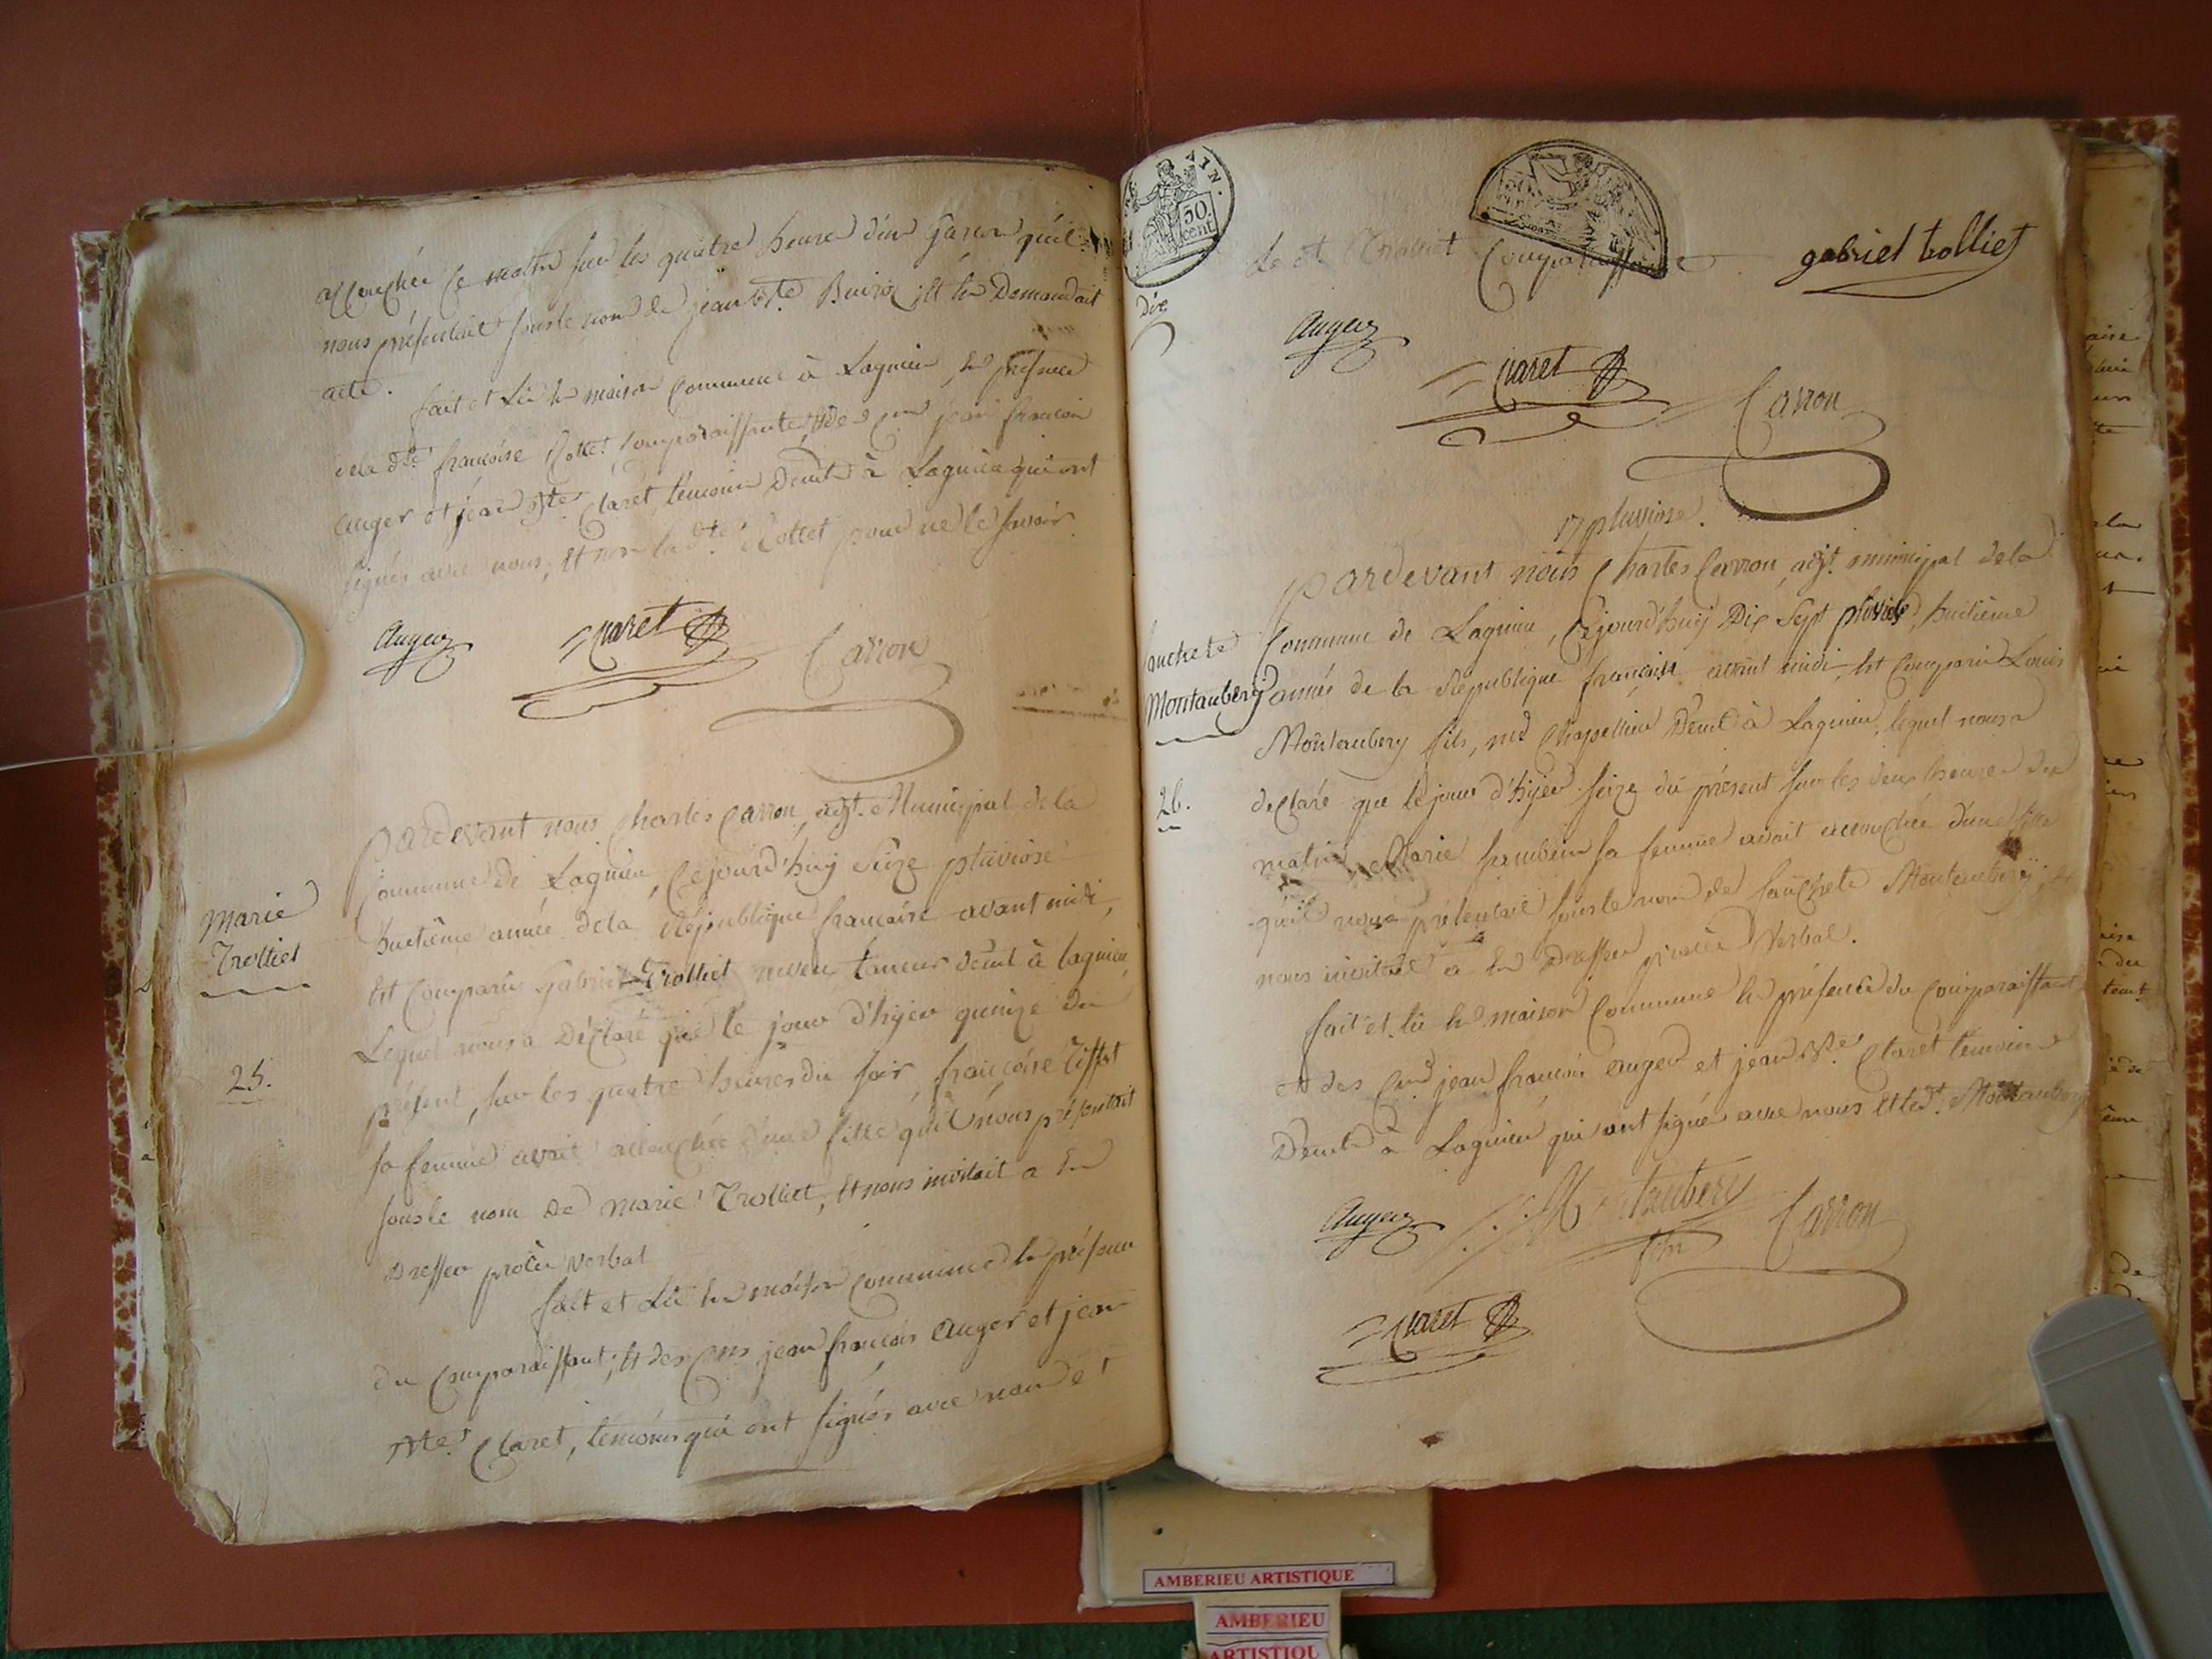 accouchée ce matin sur les quatre heures d'un garcon qu'il
nous présentait sous le nom de jean Bte. Buiron, Et en Demandait
acte.
fait et Lu En maison Commune à Lagnieu, En présence
de la dte. françoise Rottet Comparaissante, & des Cns jean francois
auger et jean Bte. Claret, témoins Demts à Lagnieu qui ont
signés avec nous, Et non la dte. Rottet pour ne le savoir.
Auger
Claret
Carron
Pardevant nous Charles Carron, agt. Municipal de la
Commune de Lagnieu, Cejourd'huy Seize pluviose
huitième année de la République francaise avant midi,
Marie
Trolliet
25.
Est Comparu Gabriel Trolliet neveu tanneur demt à lagnieu,
Lequel nous a Déclaré que le jour d'hyer quinze du
présent, sur les quatre heures du soir françoise Tiffet
sa femme avait accouchée d'une fille qu'il nous présentait
sous le nom de Marie Trolliet, Et nous invitait a En
Dresser procès verbal
fait et Lu En maison Commune En présence
du Comparaissant, Et des Cns jean francois Auger et jean
Bte. Claret, témoins qui ont signés avec nous et
VIN.
50
cent.
Dix
Le dt. Trolliet Comparaissant
gabriel trolliet
Auger
Claret
Carron
17 pluviose.
Pardevant nous Charles Carron, agt. municipal de la
Commune de Lagnieu, Cejourd'huy Dix Sept pluviose, huitième
année de la République francaise avant midi, Est Comparu Louis
fauchete
Montaubery
26.
Montaubery fils, md Chappellier Demt à Lagnieu, lequel nous a
declaré que le jour d'hyer seize du présent sur les deux heures du
matin, Marie sa femme avait accouchée d'une fille
qu'il nous présentait sous le nom de fauchete Montaubery, Et
nous invitait à En Dresser procès Verbal.
fait et Lu En maison Commune En présence du Comparaissant
Et des Cns jean francois auger et jean Bte Claret témoins
Demts à Lagnieu qui ont signé avec nous Et le dt. Montaubery
Auger
Montaubery
fils
Carron
Claret
AMBERIEU ARTISTIQUE
AMBERIEU
ARTISTIQU